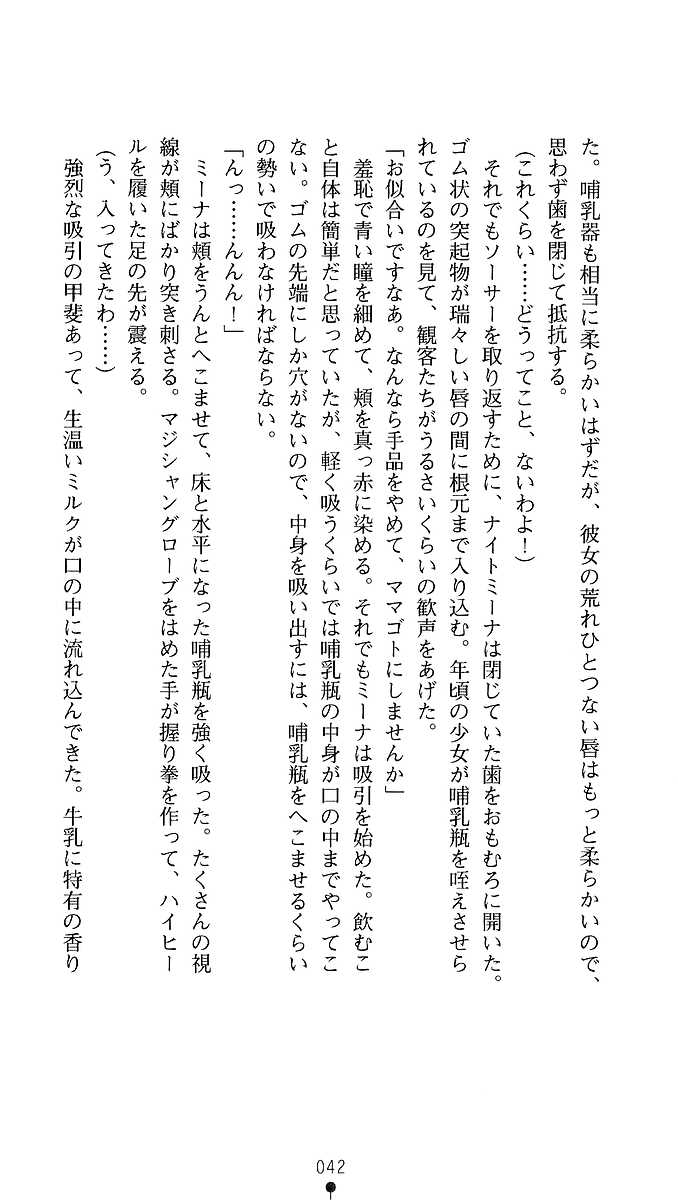 た。哺乳器も相当に柔らかいはずだが、彼女の荒れひとつない唇はもっと柔らかいので、
思わず歯を閉じて抵抗する。
（これくらい……どうってこと、ないわよ！）
それでもソーサーを取り返すために、ナイトミーナは閉じていた歯をおもむろに開いた。
ゴム状の突起物が瑞々しい唇の間に根元まで入り込む。年頃の少女が哺乳瓶を咥えさせら
れているのを見て、観客たちがうるさいくらいの歓声をあげた。
「お似合いですなあ。なんなら手品をやめて、ママゴトにしませんか」
羞恥で青い瞳を細めて、頬を真っ赤に染める。それでもミーナは吸引を始めた。飲むこ
と自体は簡単だと思っていたが、軽く吸うくらいでは哺乳瓶の中身が口の中までやってこ
ない。ゴムの先端にしか穴がないので、中身を吸い出すには、哺乳瓶をへこませるくらい
の勢いで吸わなければならない。
「んっ……んんん！」
ミーナは頬をうんとへこませて、床と水平になった哺乳瓶を強く吸った。たくさんの視
線が頬にばかり突き刺さる。マジシャングローブをはめた手が握り拳を作って、ハイヒー
ルを履いた足の先が震える。
（う、入ってきたわ……）
強烈な吸引の甲斐あって、生温いミルクが口の中に流れ込んできた。牛乳に特有の香り
042